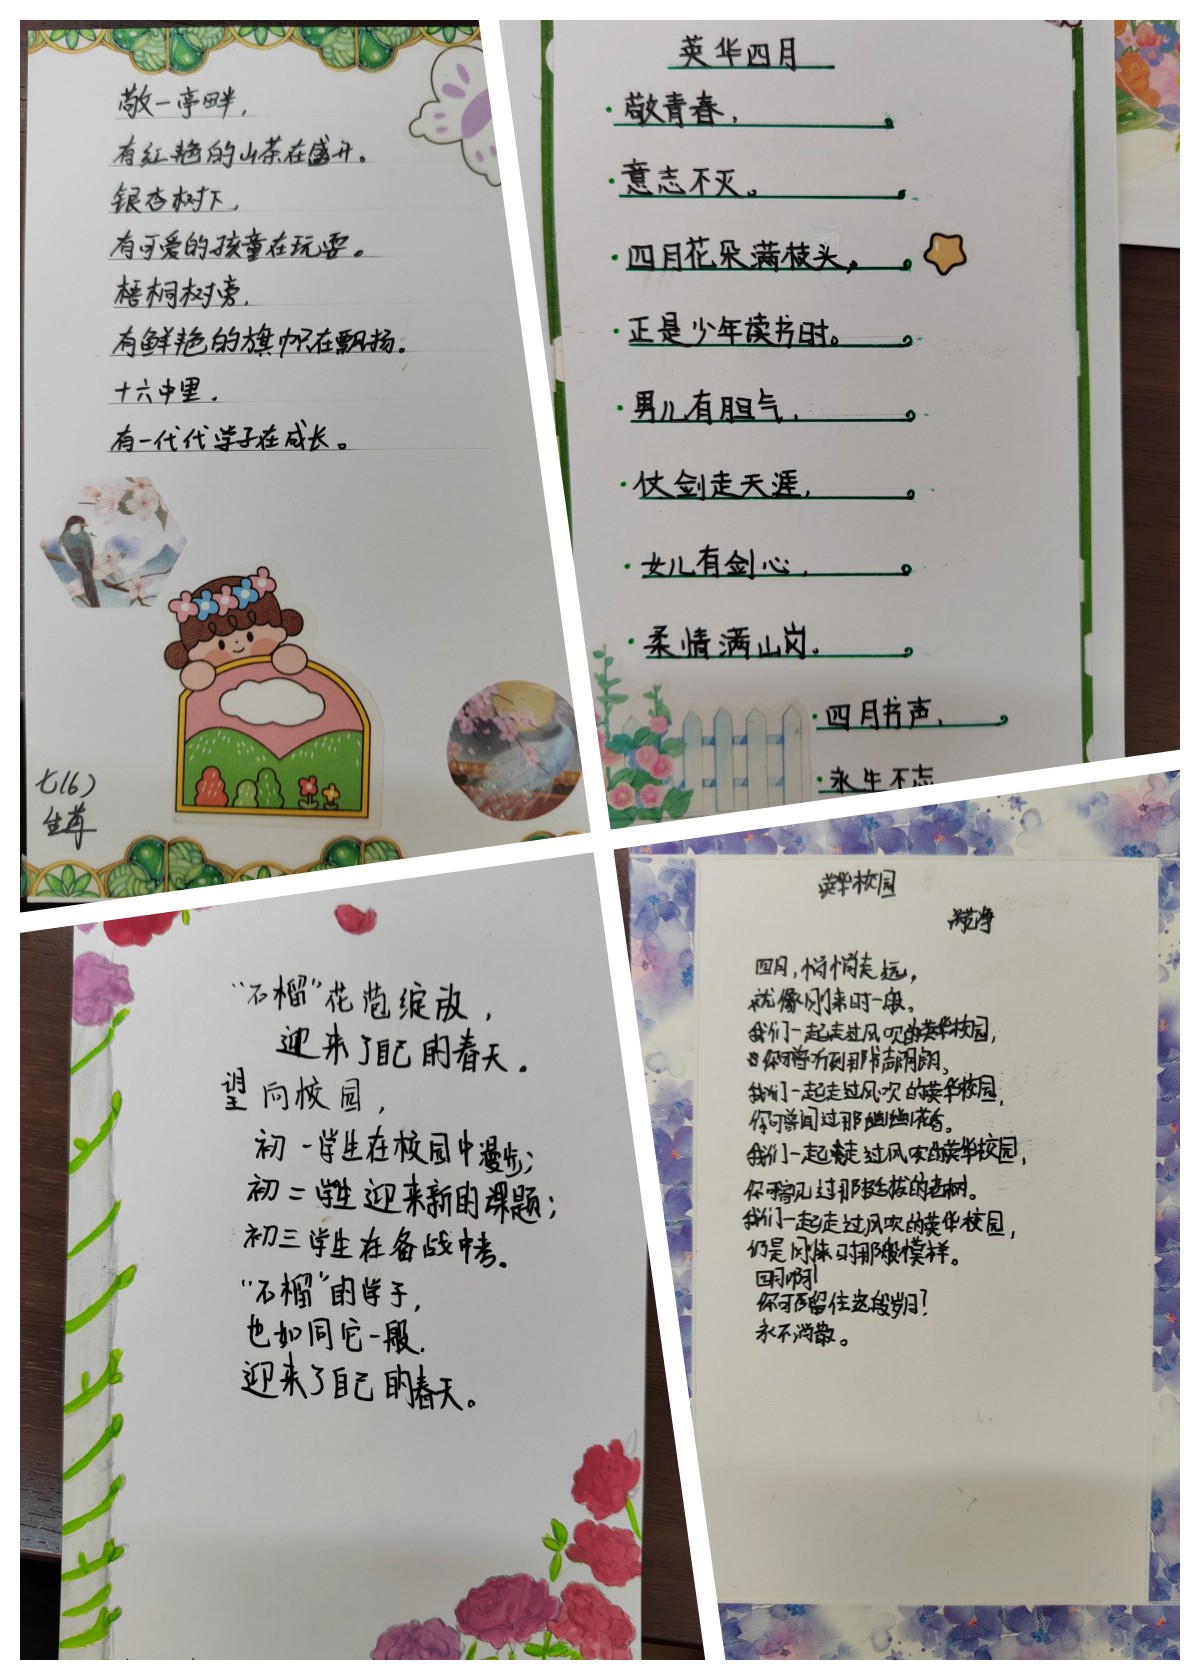 敬一亭畔，
有红艳的山茶在盛开。
银杏树下，
有可爱的孩童在玩耍。
梧桐树旁，
有鲜艳的旗帜在飘扬。
十六中里，
有一代代学子在成长。
七(6)
英华四月
敬青春，
意志不灭。
四月花朵满枝头，
正是少年读书时。
男儿有胆气，
仗剑走天涯，
女儿有剑心，
柔情满山岗.
四月书声，
永生不忘
“石榴”花苞绽放，
迎来了自己的春天。
望向校园，
初一学生在校园中漫步；
初二学生迎来新的课题；
初三学生在备战中考。
“石榴”的学子，
也如同它一般，
迎来了自己的春天。
英华校园
四月，悄悄走远，
就像刚来时一般。
我们一起走过风吹的英华校园，
你可曾听到那书声朗朗，
我们一起走过风吹的英华校园，
你可曾闻过那幽幽花香。
我们一起走过风吹的英华校园，
你可曾见过那挺拔的老树。
我们一起走过风吹的英华校园，
仍是刚来时那般模样。
四月啊！
你可否留住这段岁月？
永不消散。